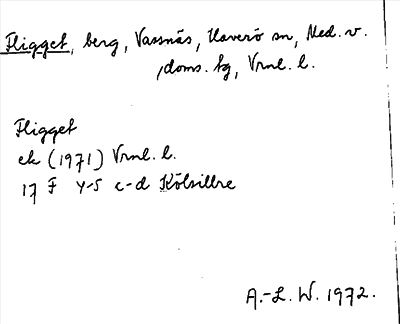 Fligget, berg, Vassnäs, Haverö sn, Med. v.
doms. tg, Vrnl. l.
Fligget
ek (1971) Vrnl. l.
17 F Y-S c-d Kölsillre
A.-L. W. 1972.